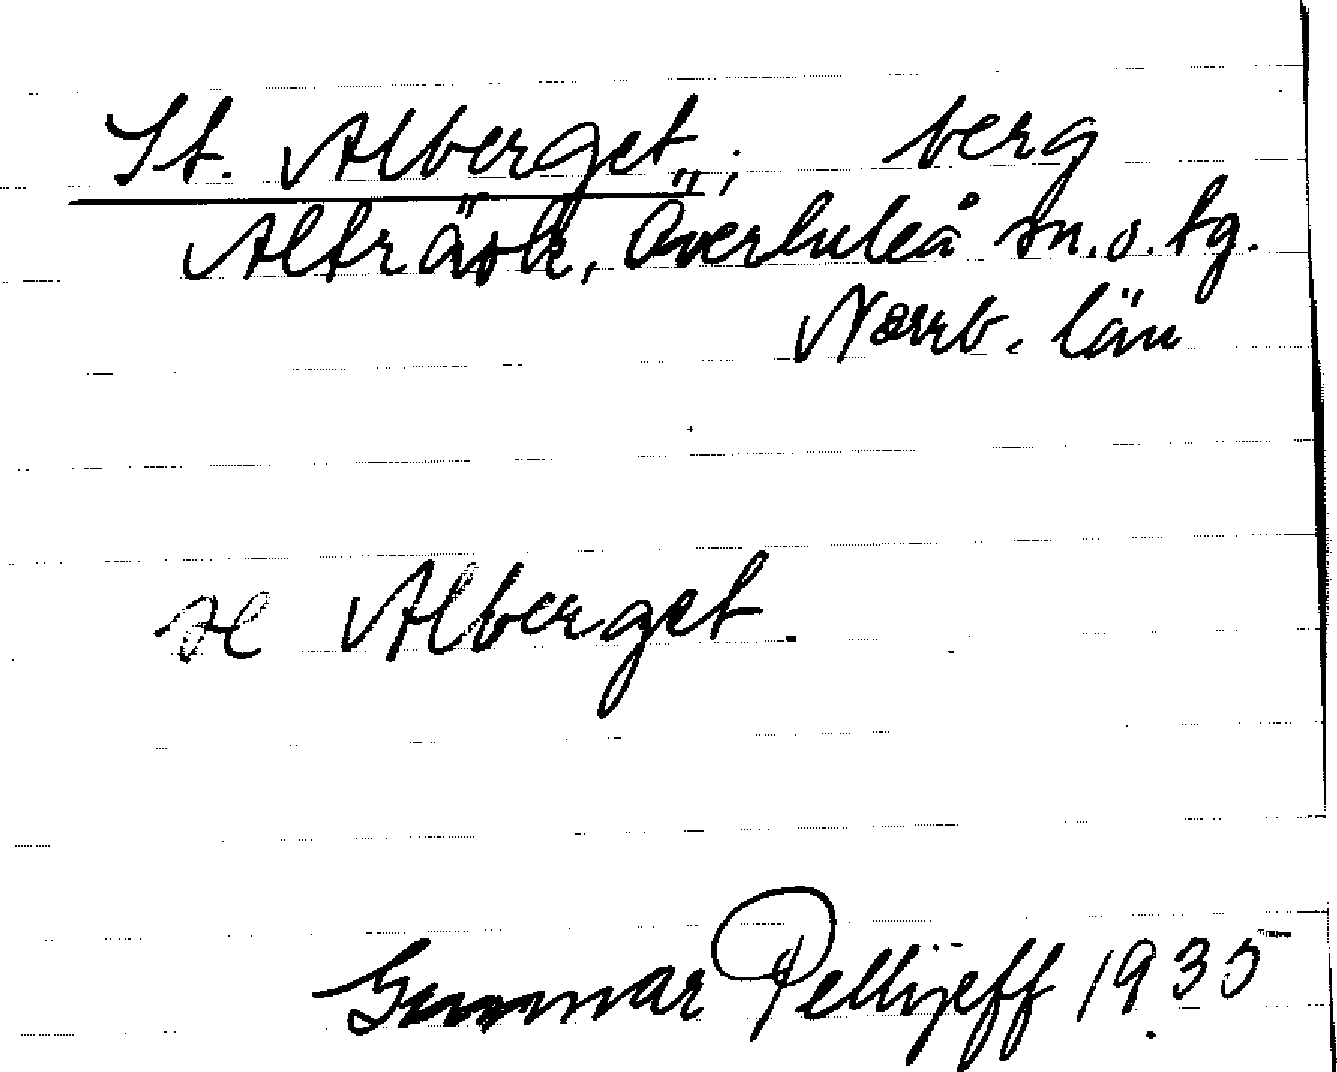 St. Alberget, ; berg
Alträsk, Överluleå sn. o. tg.
Norrb. län
se Alberget.
Gunnar Pellijeff 1935